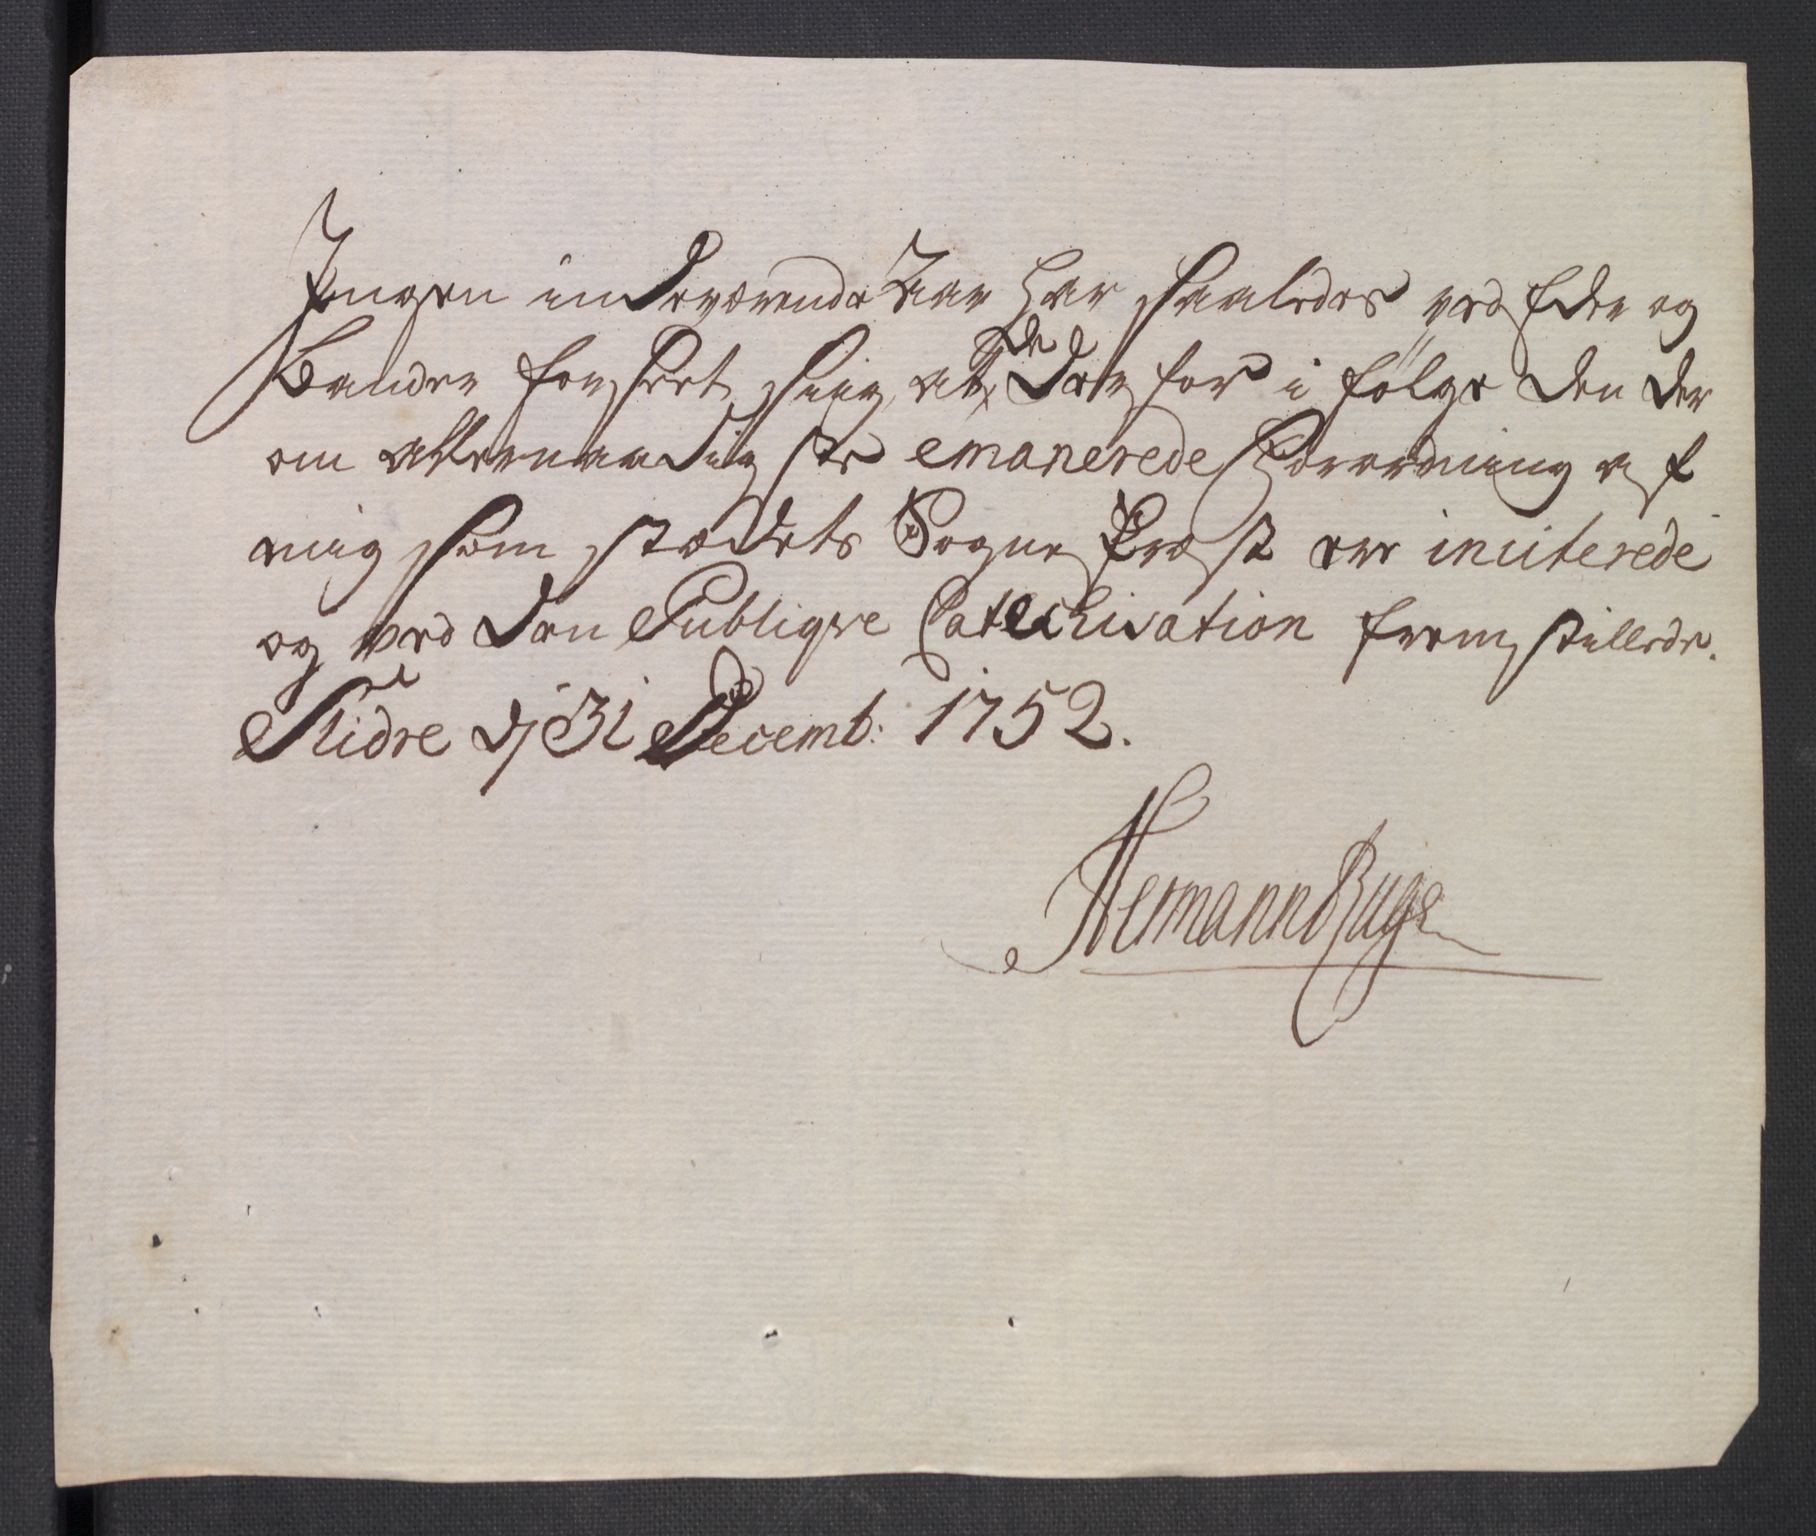 Ingen indeværende Aar har saaledes ved Eder og
Bander forseet sig, at de derfor i følge den der
om allernaadigste emanerede Forordning af
mig som stædets Sogne Præst ere inciterede
og ved den Publiqve Catechisation fremstillede.
Slidre d 31 Decemb: 1752.
Hermann Ruge